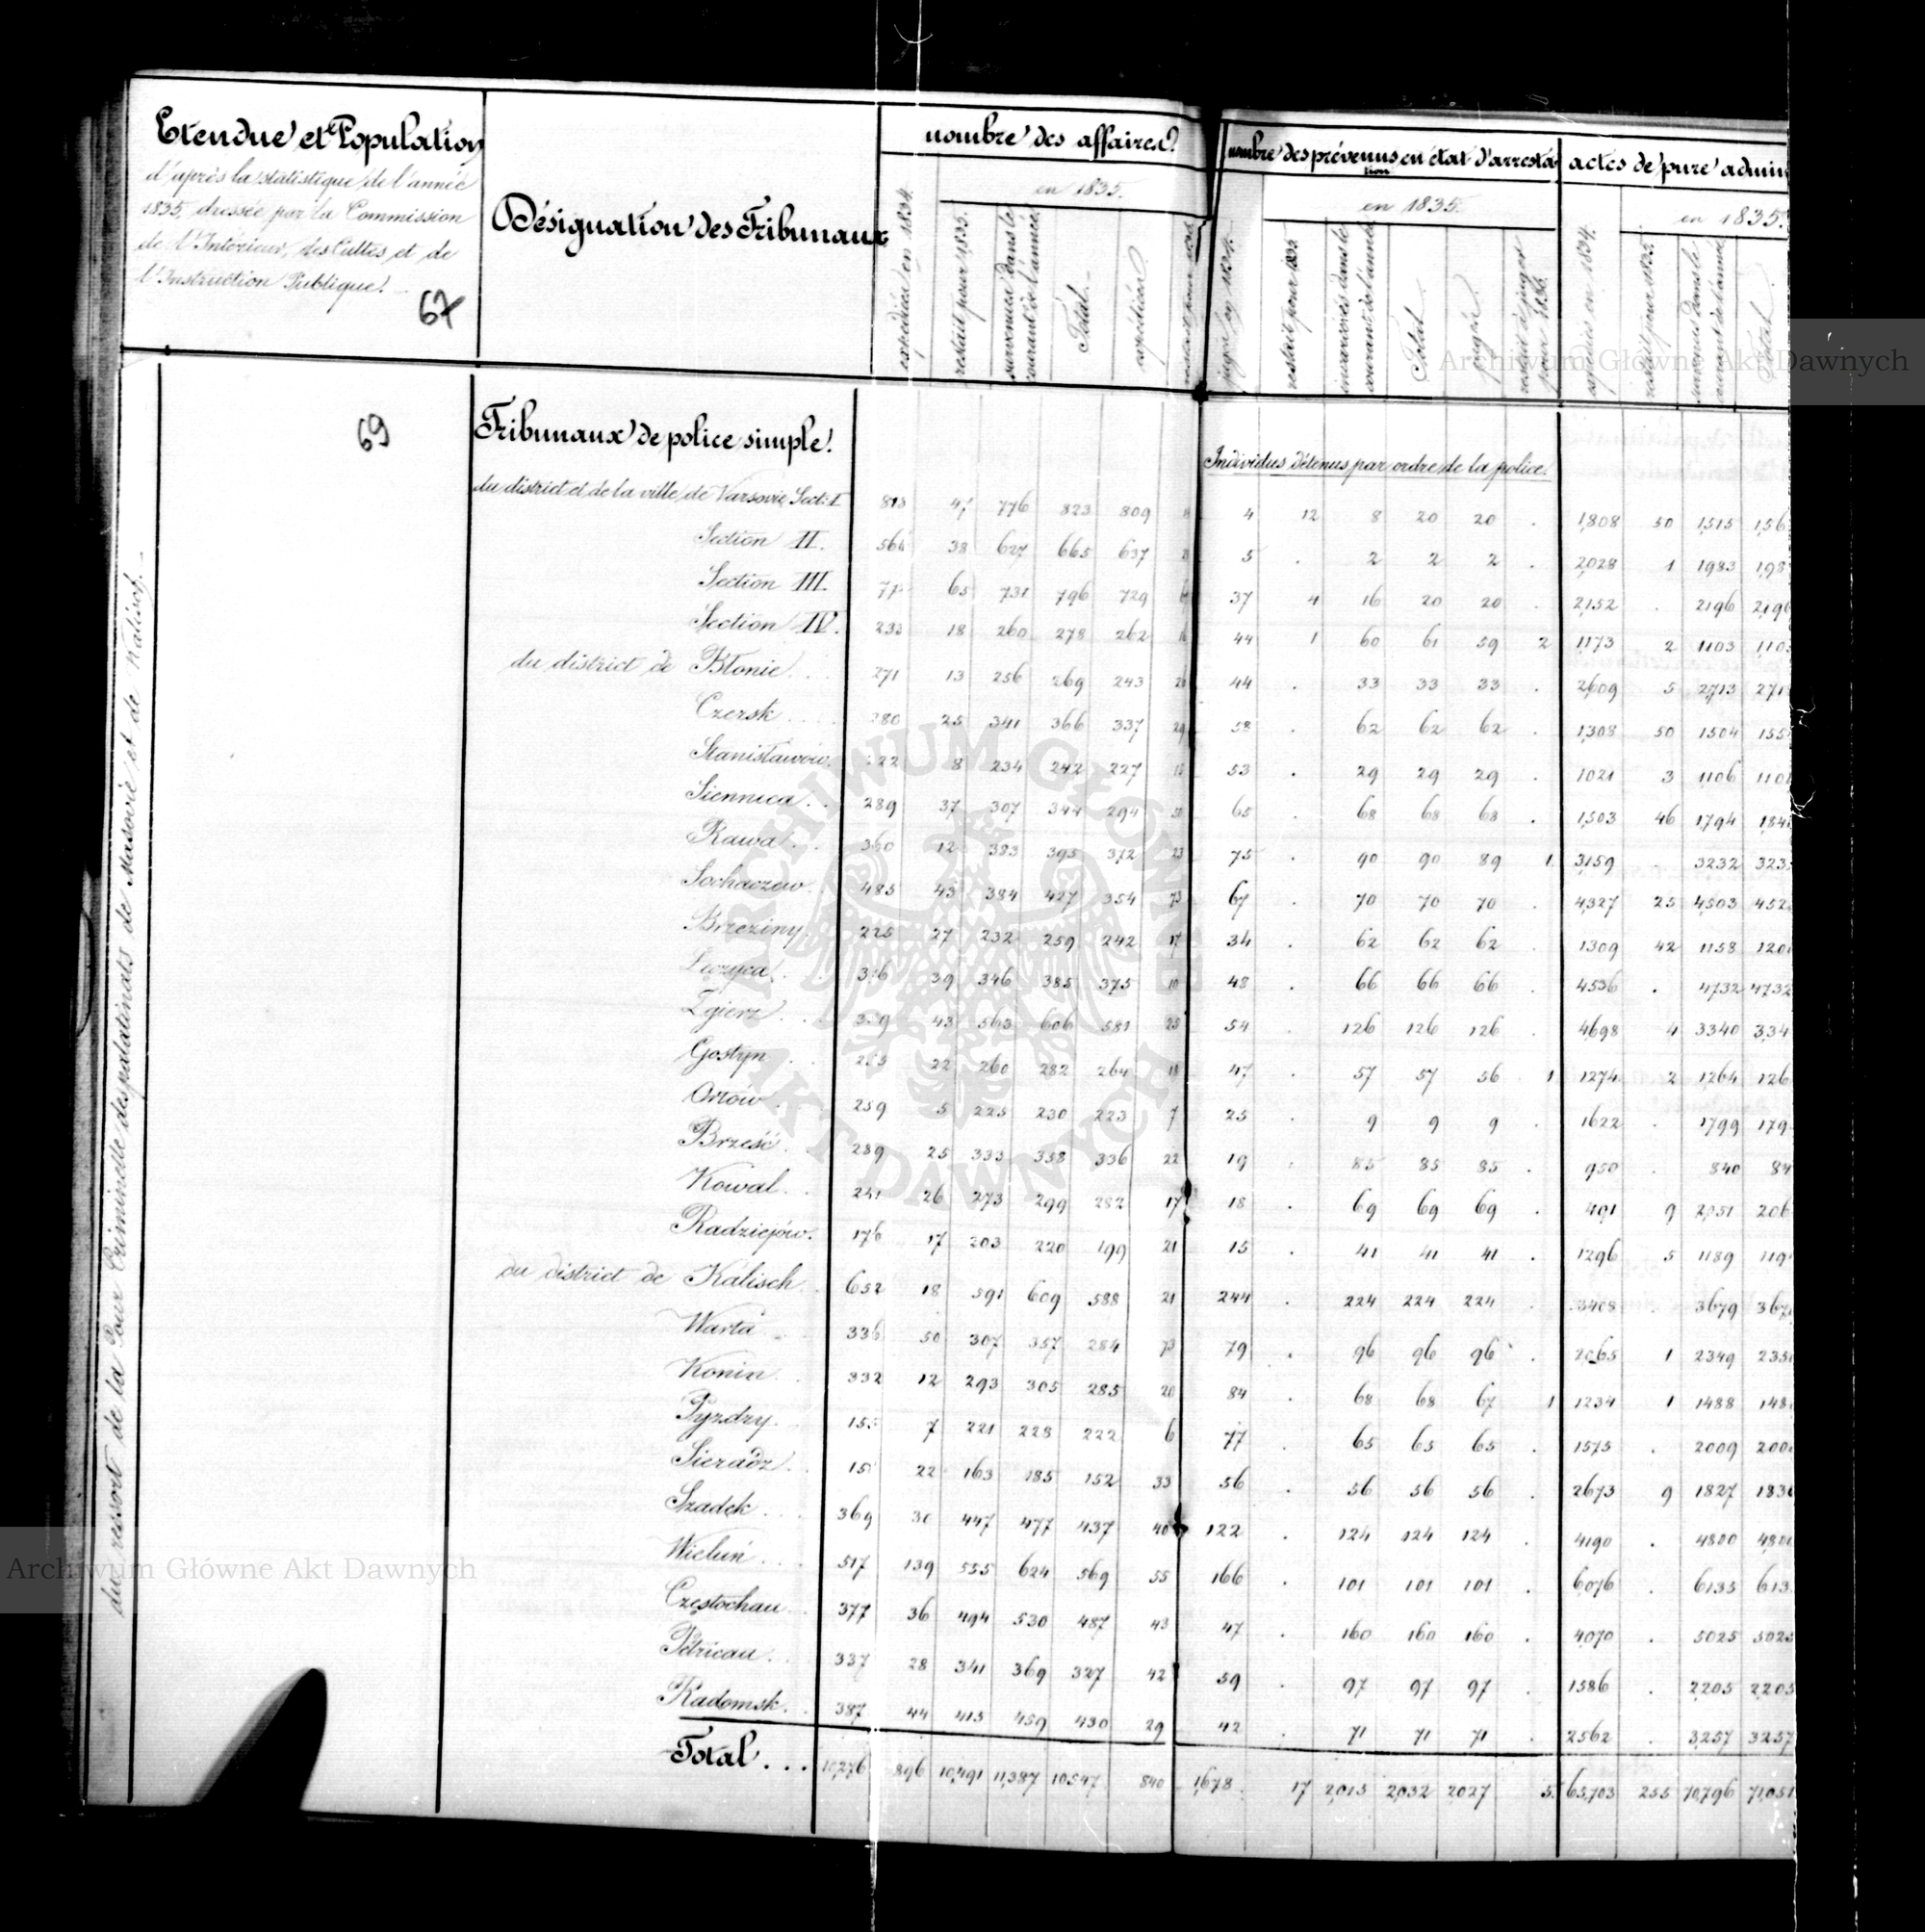 Etendue et Population
d'après la statistique de l'année
1835, dressée par la Commission
de l'Intérieur, des Cultes et de
l'Instruction Publique.
67
Désignation des Tribunaux
nombre des affaires.
expédiées en 1834.
en 1835.
restait pour 1835.
survenues dans le courant de l'année
Total
expédiées
nombre des prévenus en état d'arrestation
jugés en 1834.
en 1835.
restait pour 1835
incarcérés dans le courant de l'année
Total
jugés
restait à juger pour 1836.
actes de pure admin
expédiés en 1834.
en 1835.
restait pour 1835.
survenus dans le courant de l'année
Total
Archiwum Główne Akt Dawnych
69
du ressort de la Cour Criminelle des palatinats de Masovie et de Kalisch.
Tribunaux de police simple.
Individus détenus par ordre de la police.
du district et de la ville de Varsovie Sect: I 47 776 823 809 4 12 8 20 20 . 1,808 50 1,515 1,56
Section II. 564 38 627 665 637 5 . 2 2 2 . 2,028 1 1983 1,98
Section III. 65 731 796 729 37 4 16 20 20 . 2,152 . 2196 2,196
Section IV. 233 18 260 278 262 16 44 1 60 61 59 2 1,173 2 1103 110
du district de Błonie . . 271 13 256 269 243 26 44 . 33 33 33 . 2,609 5 2,713 271
Czersk . . . 280 25 341 366 337 29 58 . 62 62 62 . 1,308 50 1504 155
Stanisławów. 222 8 234 242 227 15 53 . 29 29 29 . 1021 3 1,106 110
Siennica . . 289 37 307 344 294 50 65 . 68 68 68 . 1,503 46 1,794 1,84
Rawa . . 360 12 383 395 372 23 75 . 90 90 89 1 3,159 . 3232 323
Sochaczew . . 485 43 384 427 354 73 67 . 70 70 70 . 4,327 25 4,503 452
Brzeziny . 225 27 232 259 242 17 34 . 62 62 62 . 1309 42 1158 120
Łęczyca . . 39 346 385 375 10 48 . 66 66 66 . 4536 . 4732 4732
Zgierz . . 43 563 606 581 25 54 . 126 126 126 . 4698 4 3340 334
Gostyn . . 22 260 282 264 18 47 . 57 57 56 1 1274 2 1264 126
Orłów . . 259 5 225 230 223 7 25 . 9 9 9 . 1622 . 1799 179
Brześć . . 289 25 333 358 336 22 19 . 85 85 85 . 950 . 840 84
Kowal . . 26 273 299 282 17 18 . 69 69 69 . 9 2,051 206
Radziejów. 176 17 203 220 199 21 15 . 41 41 41 . 1296 5 1189 119
du district de Kalisch . 652 18 591 609 588 21 244 . 224 224 224 . 3408 . 3679 367
Warta . . 336 50 307 357 284 73 79 . 96 96 96 . 2065 1 2349 235
Konin . . 332 12 293 305 285 20 84 . 68 68 67 1 1234 1 1488 148
Pyzdry . . 7 221 228 222 6 77 . 65 65 65 . 1575 . 2009 200
Sieradz . . 22 163 185 152 33 56 . 56 56 56 . 2673 9 1827 183
Szadek . . . 369 30 447 477 437 40 122 . 124 124 124 . 4190 . 4800 4,80
Wieluń . . . 517 139 555 624 569 55 166 . 101 101 101 . 6,076 . 6135 613
Częstochau . 377 36 494 530 487 43 47 . 160 160 160 . 4,070 . 5025 5025
Petricau . . 337 28 341 369 327 42 59 . 97 97 97 . 1586 . 2,205 2,205
Radomsk . . 387 44 415 459 430 29 42 . 71 71 71 . 2562 . 3,257 3257
Total . . . 10,276 896 10,491 11,387 10547 840 1,678 17 2,015 2,032 2,027 5. 65,703 255 70,796 71,051
ARCHIWUM GŁÓWNE AKT DAWNYCH
Archiwum Główne Akt Dawnych